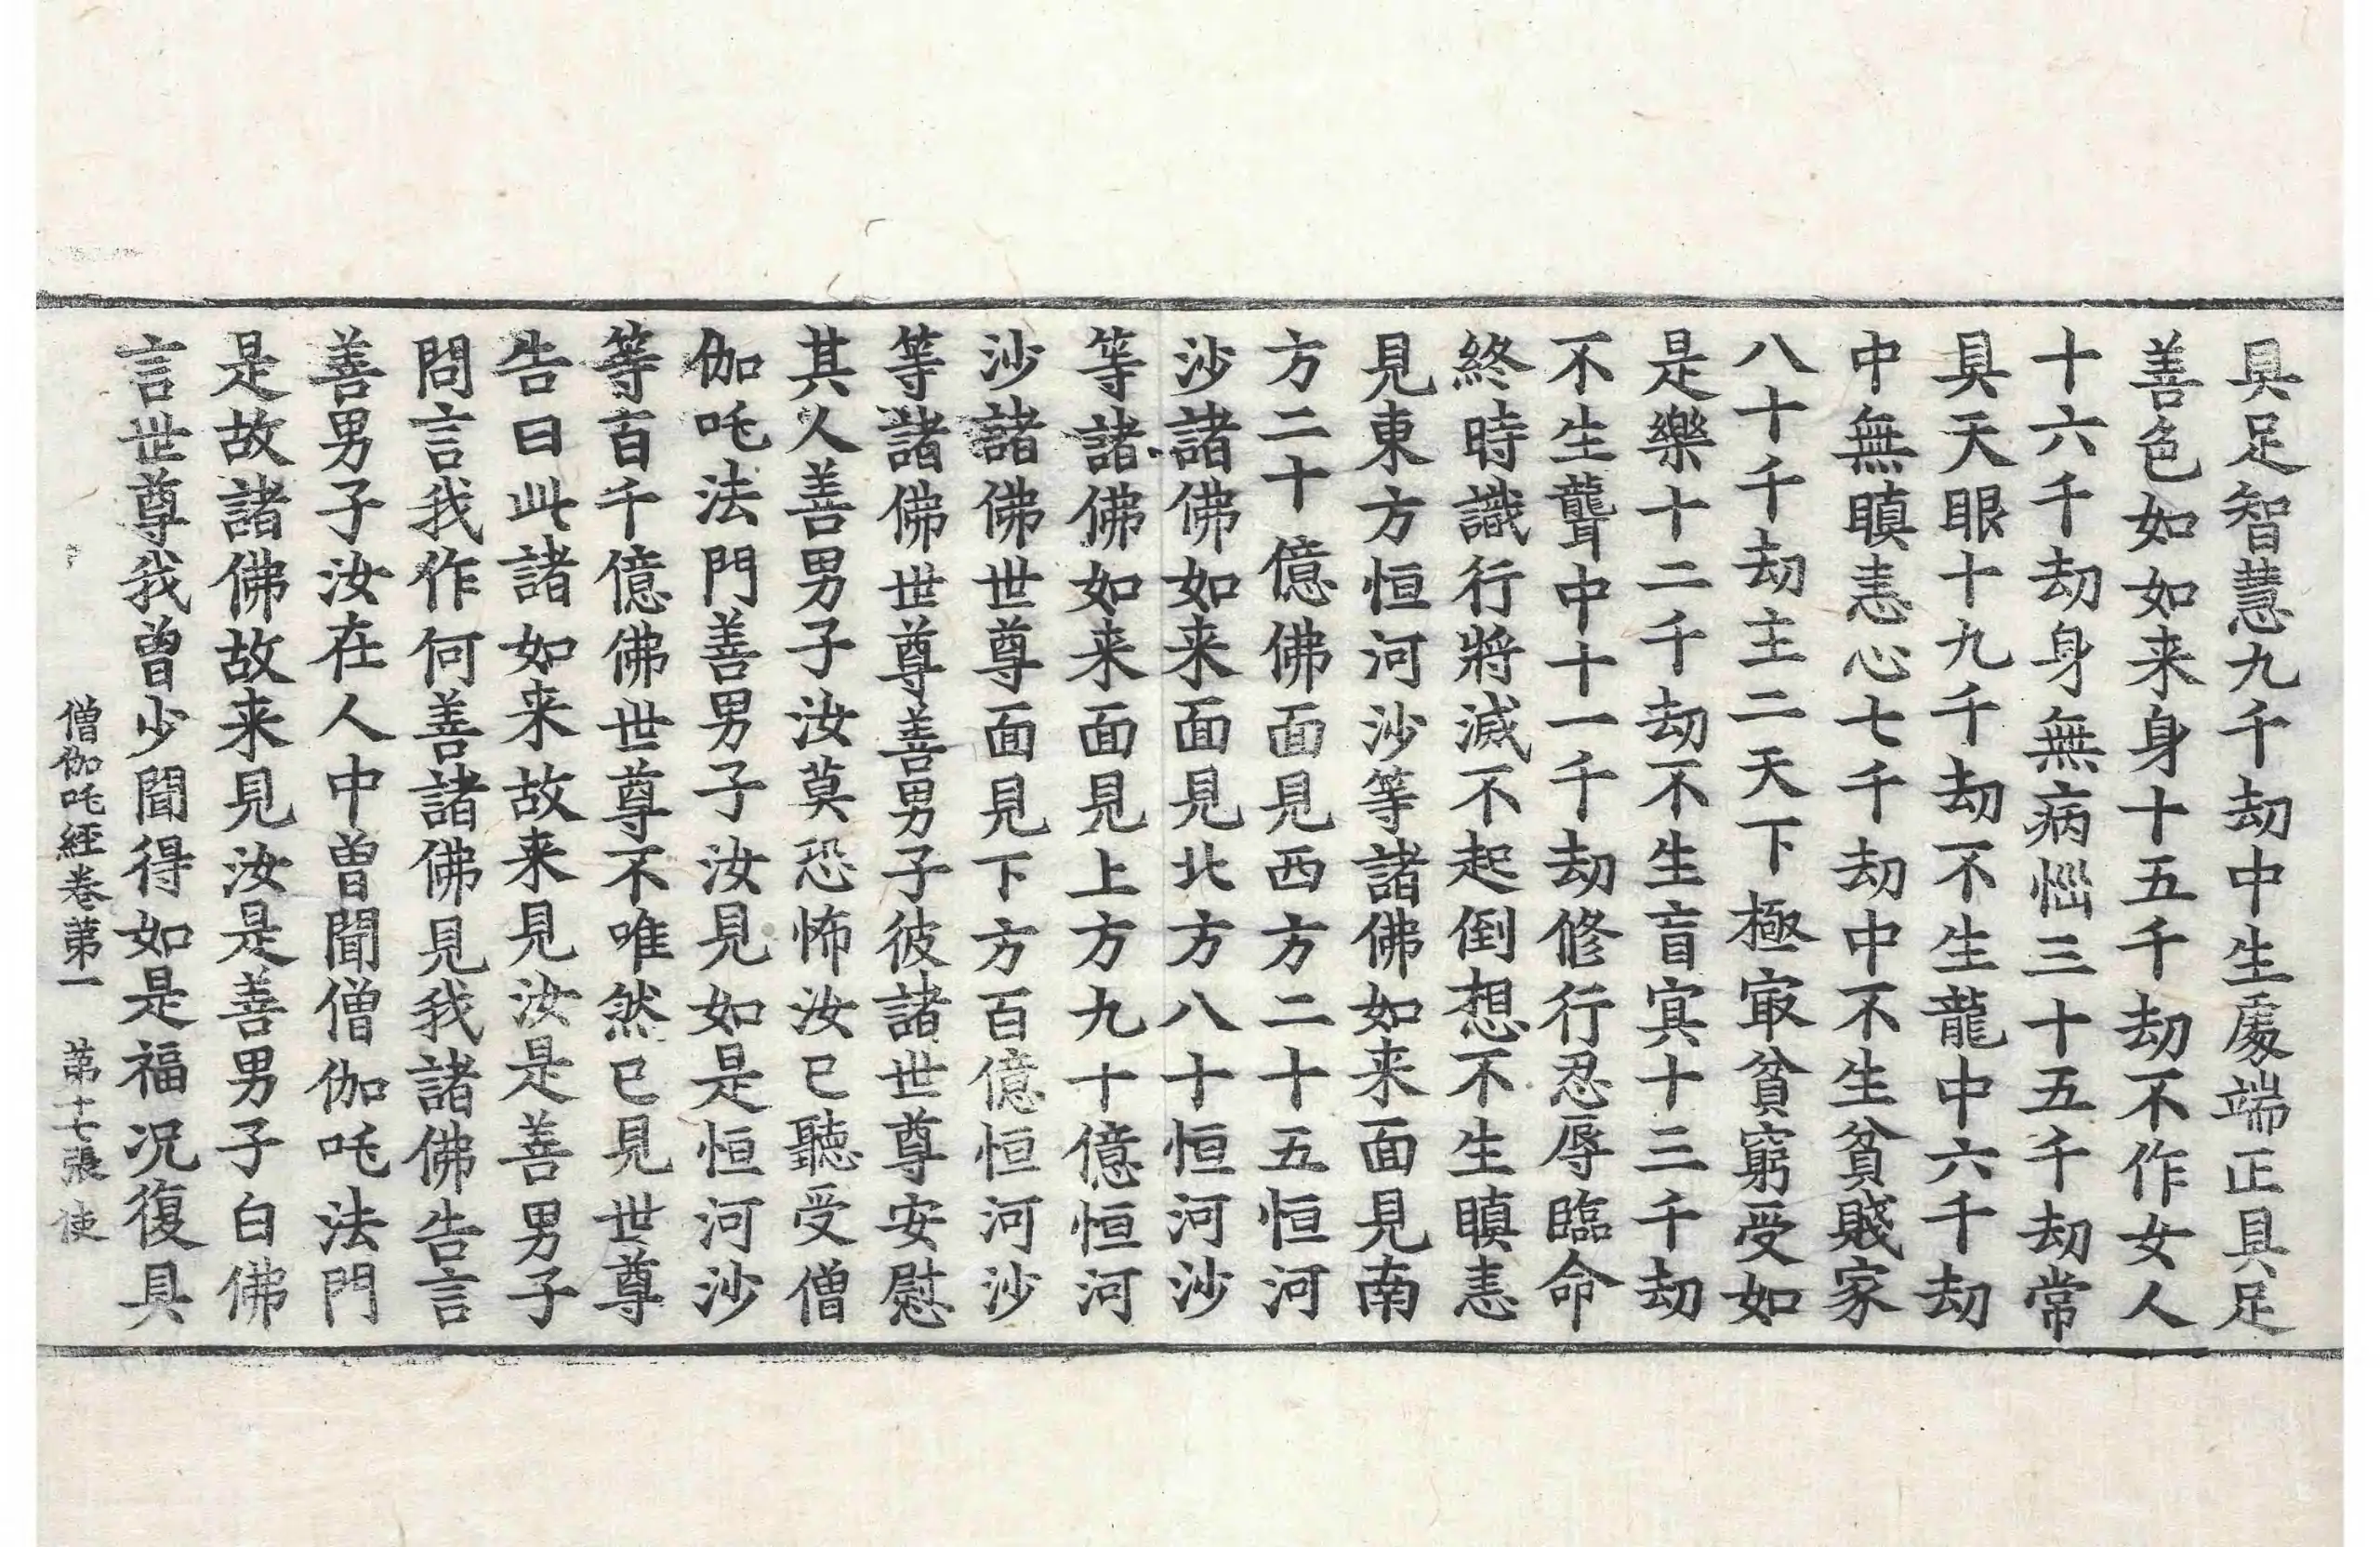 具足智慧九千劫中生處端正具足
善色如如来身十五千劫不作女人
十六千劫身無病惱三十五千劫常
具天眼十九千劫不生龍中六千劫
中無瞋恚心七千劫中不生貧賤家
八十千劫主二天下極冣貧窮受如
是樂十二千劫不生盲㝠十三千劫
不生聾中十一千劫修行忍辱臨命
終時識行將滅不起倒想不生瞋恚
見東方恒河沙等諸佛如来面見南
方二十億佛面見西方二十五恒河
沙諸佛如来面見北方八十恒河沙
等諸佛如来面見上方九十億恒河
沙諸佛世尊面見下方百億恒河沙
等諸佛世尊善男子彼諸世尊安慰
其人善男子汝莫恐怖汝已聽受僧
伽吒法門善男子汝見如是恒河沙
等百千億佛世尊不唯然已見世尊
告曰此諸如来故来見汝是善男子
問言我作何善諸佛見我諸佛告言
善男子汝在人中曽聞僧伽吒法門
是故諸佛故来見汝是善男子白佛
言世尊我曽少聞得如是福况復具
僧伽吒經卷第一　第十七張　使